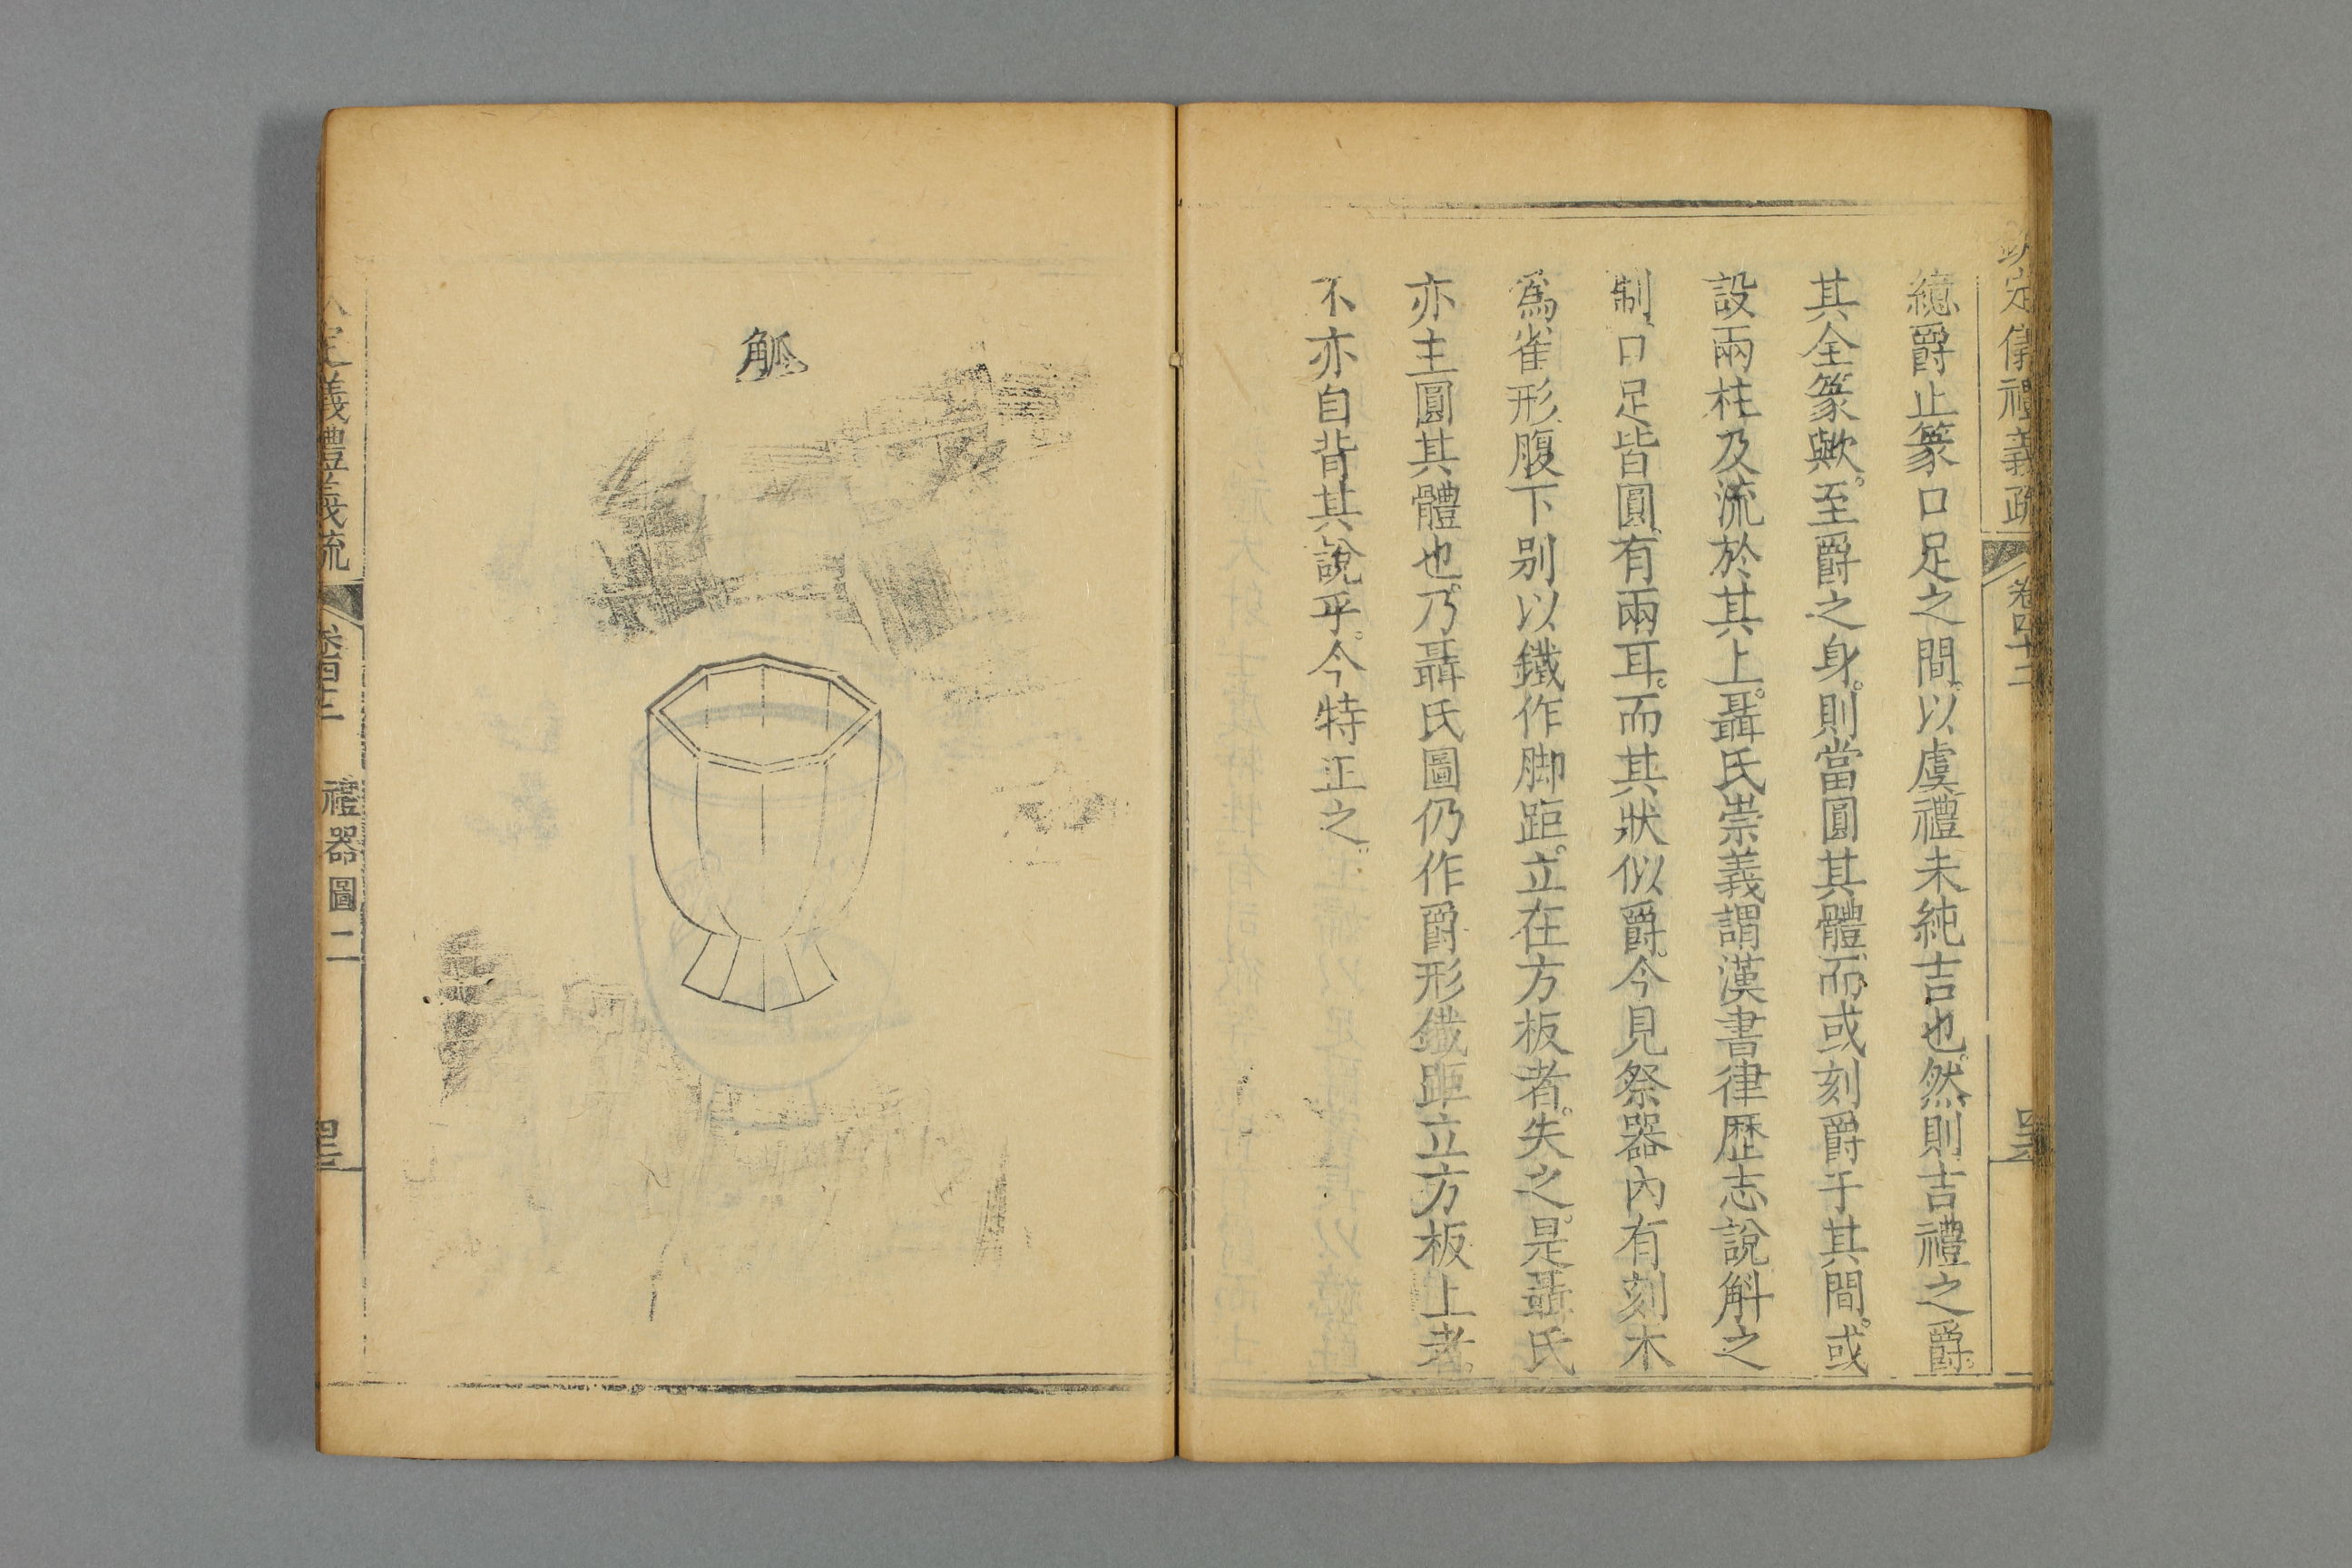 欽定儀禮義疏 卷四十三
繶爵止篆口足之間以虞禮未純吉也然則吉禮之爵
其全篆歟至爵之身則當圓其體而或刻爵于其間或
設兩柱及流於其上聶氏崇義謂漢書律歷志說斛之
制口足皆圓有兩耳而其狀似爵今見祭器內有刻木
爲雀形腹下別以鐵作脚距立在方板者失之是聶氏
亦主圓其體也乃聶氏圖仍作爵形鐵距立方板上者
不亦自背其說乎今特正之
觚
定儀禮義疏 禮器圖二